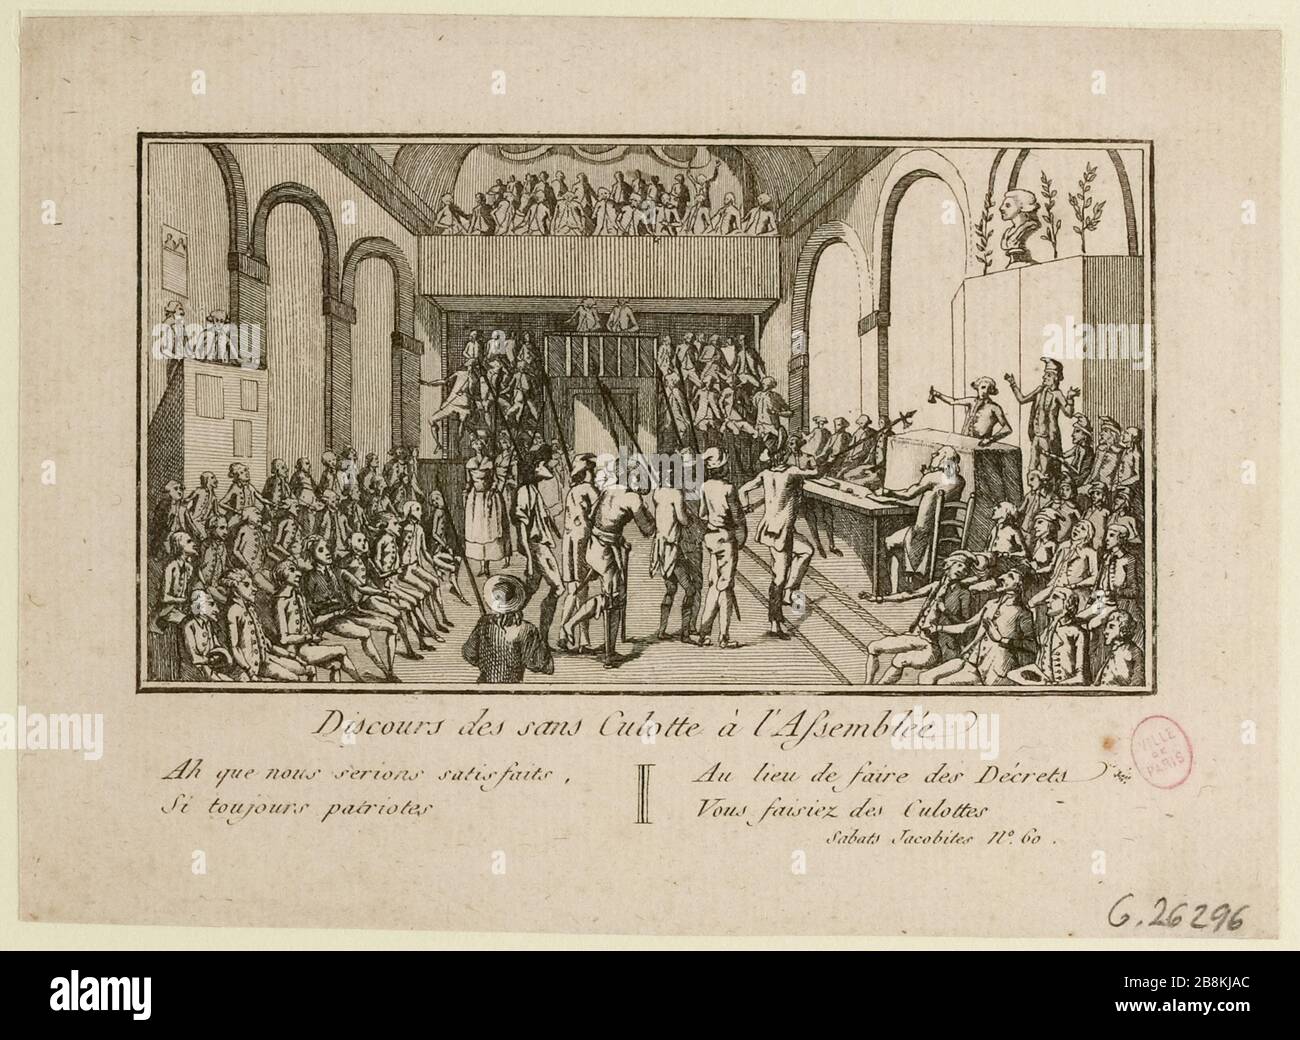 Discours des sans Culotte à l'Assemblée
Ah que nous serions satisfaits,
Si toujours patriotes
Au lieu de faire des Décrets
Vous faisiez des Culottes
Sabats Jacobites N.º 60.
VILLE
DE
PARIS
G.26296
alamy
Image ID: 2B8KJAC
www.alamy.com